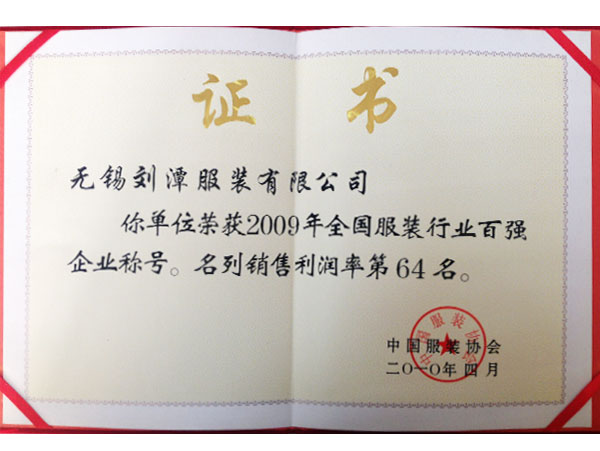 证书
无锡刘潭服装有限公司
你单位荣获2009年全国服装行业百强
企业称号。名列销售利润率第64名。
中国服装协会
中国服装协会
二〇一〇年四月